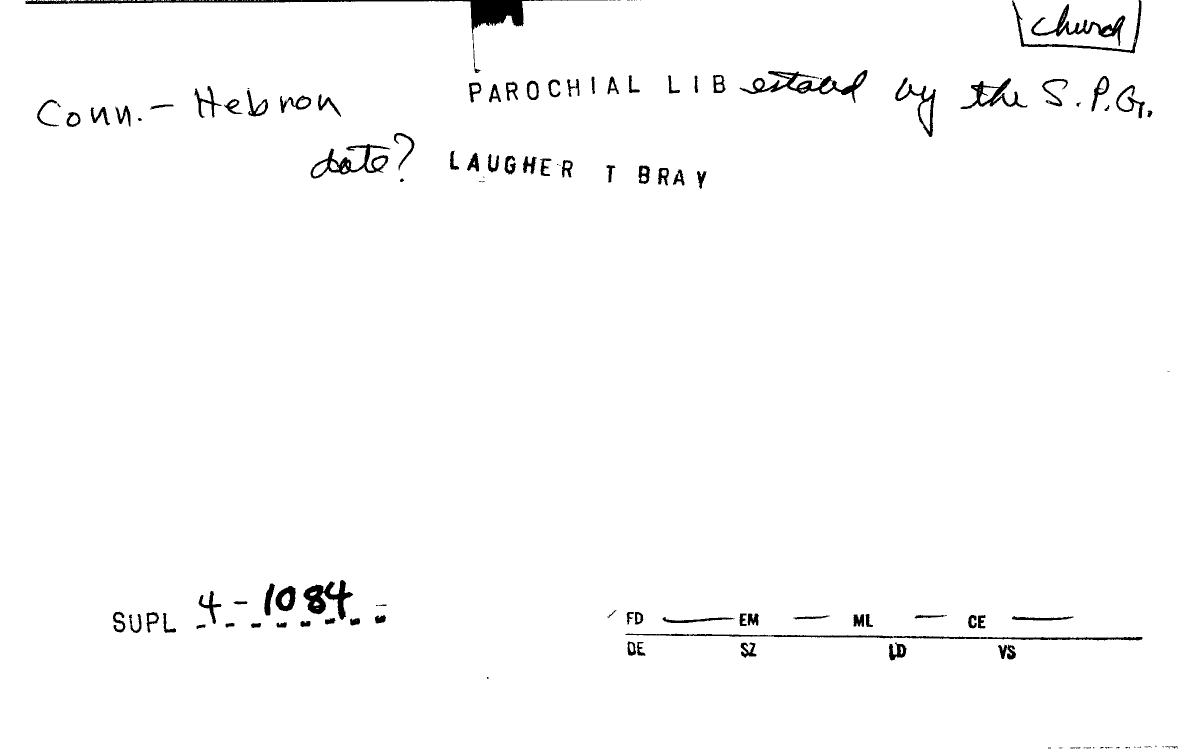 church
Conn. - Hebron PAROCHIAL LIB estabd by the S.P.G.
date? LAUGHER T BRAY
SUPL 4-1084
FD EM ML CE
DE SZ LD VS